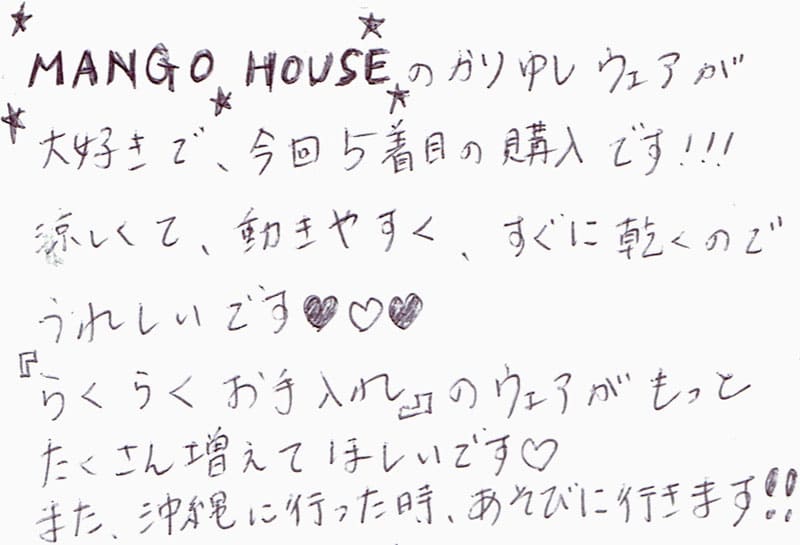 MANGO HOUSEのかりゆしウェアが
大好きで、今回5着目の購入です!!!
涼しくて、動きやすく、すぐに乾くので
うれしいです♥♡♥
『らくらくお手入れ』のウェアがもっと
たくさん増えてほしいです♡
また、沖縄に行った時、あそびに行きます!!